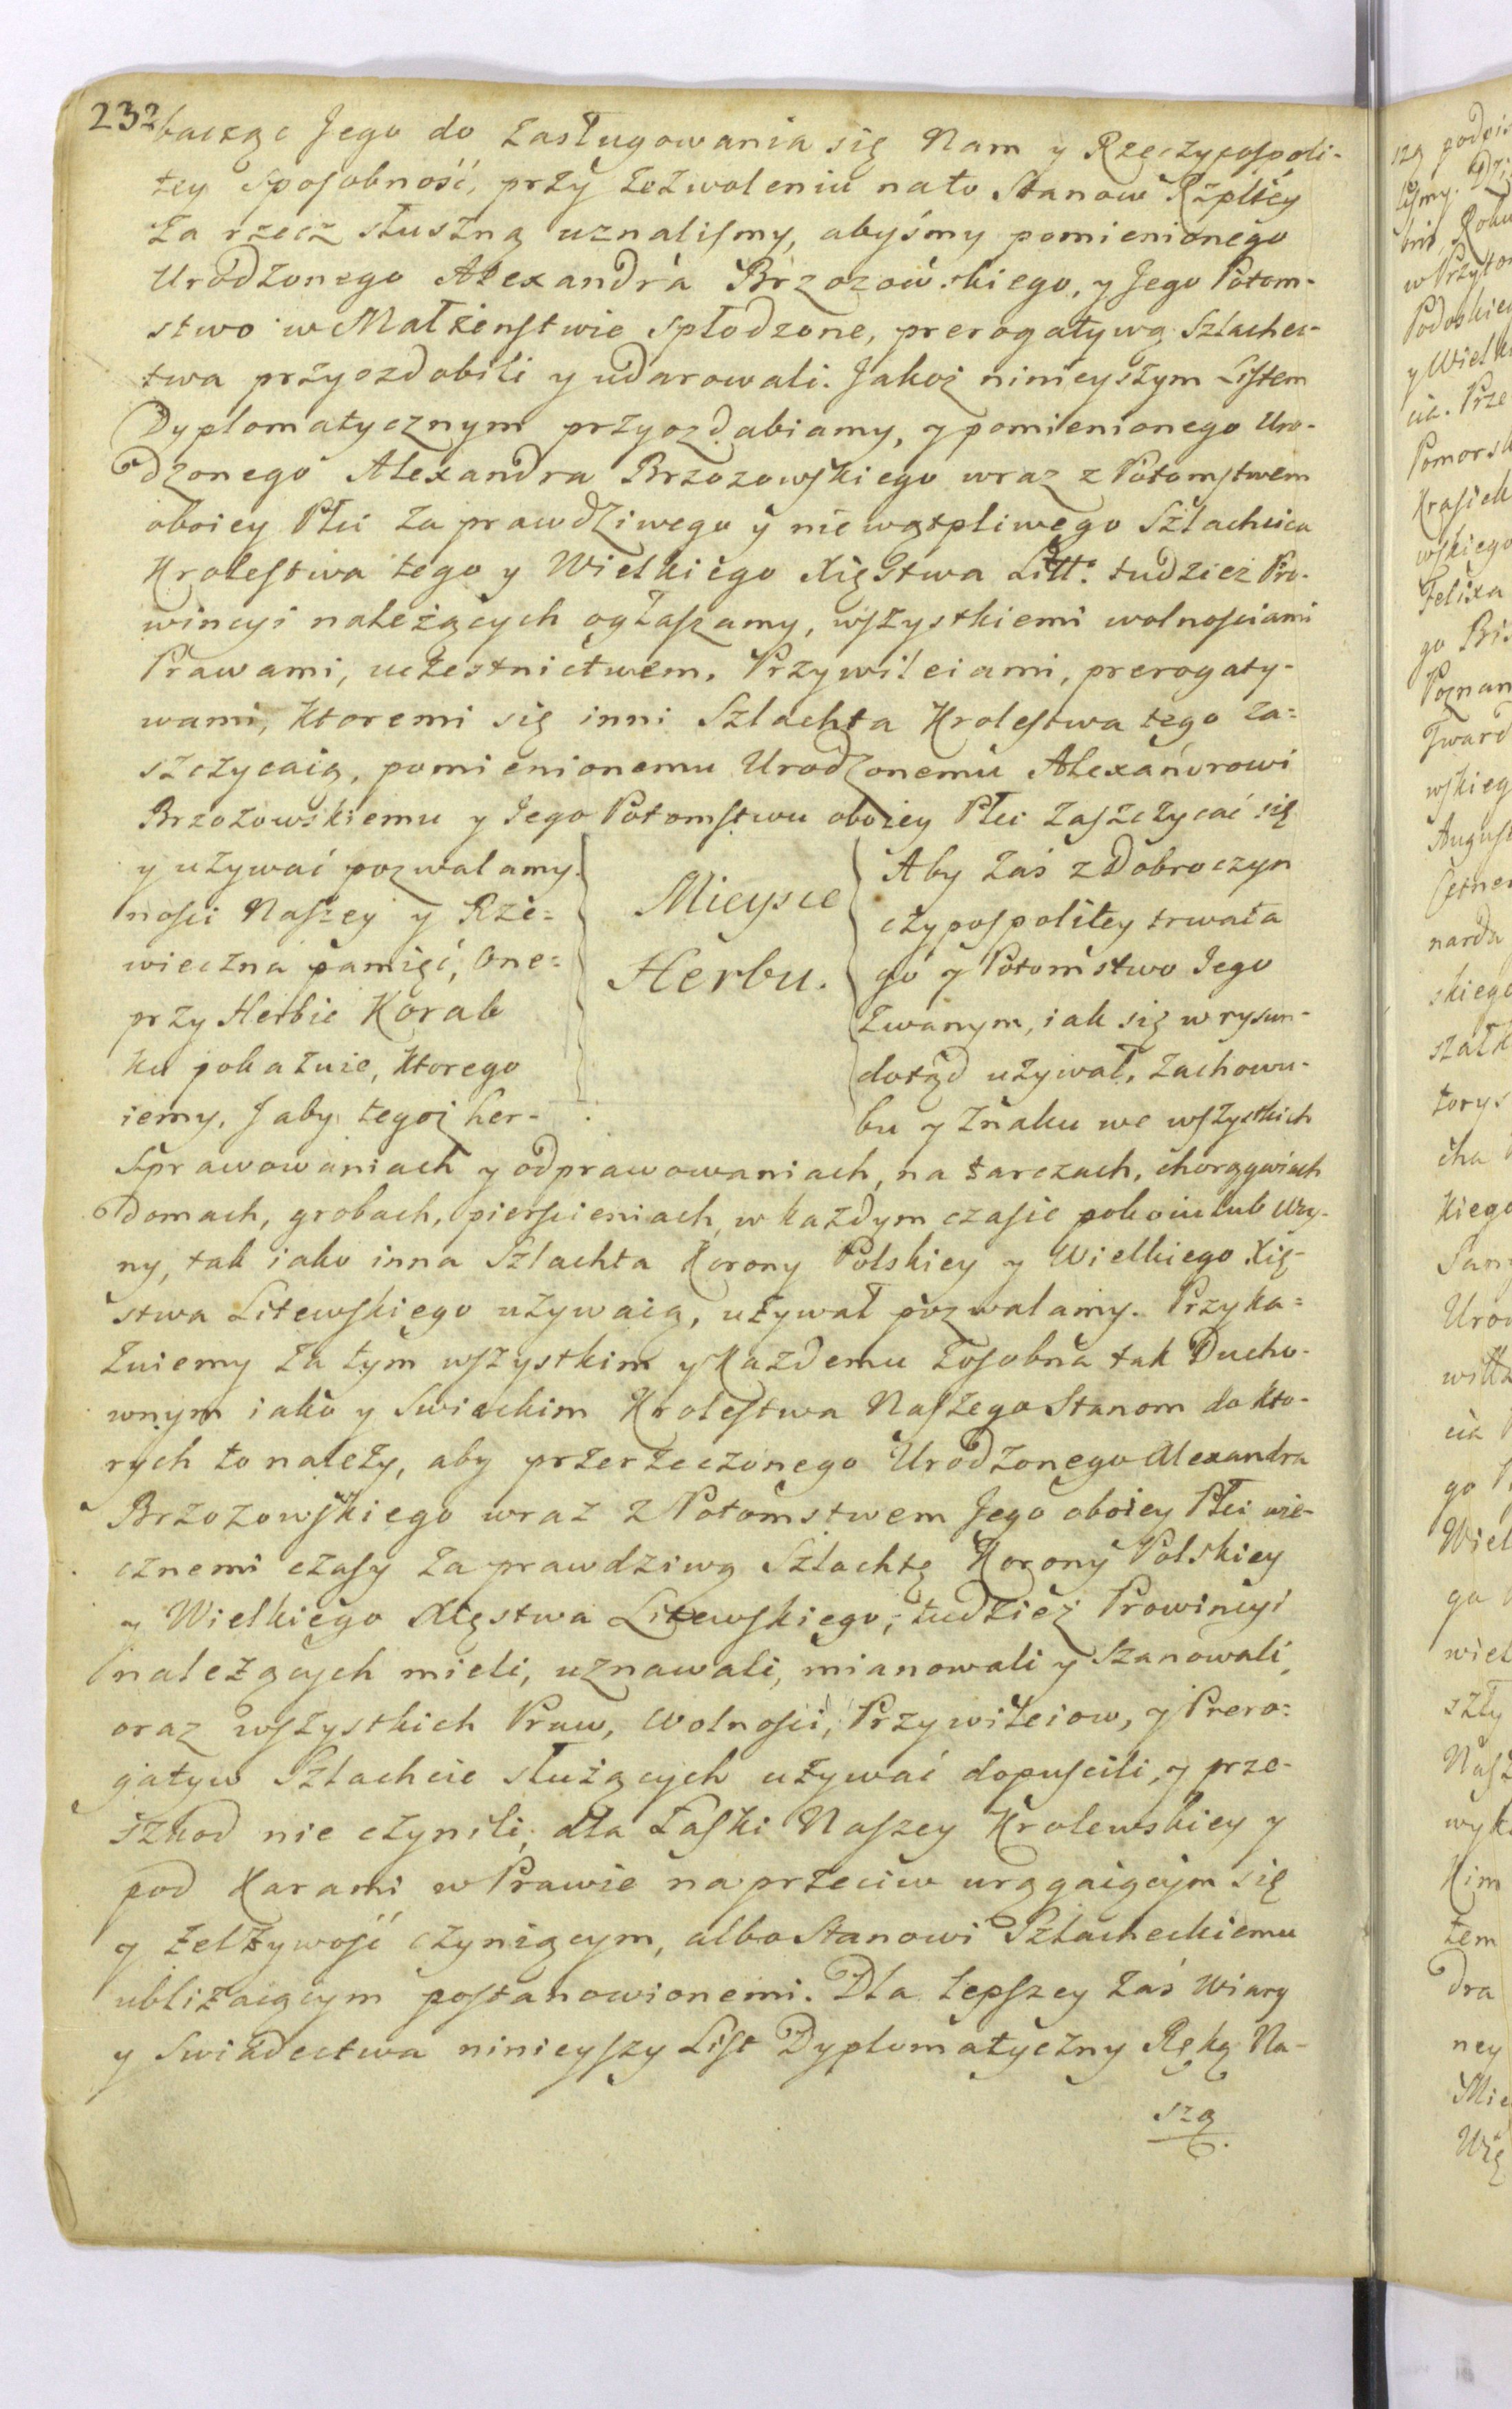 232
bacząc Jego do zasługowania się Nam y Rzeczypospoli-
tey sposobność, przy zezwoleniu na to Stanow Rzpltey
za rzecz słuszną uznalismy, abyśmy pomienionego
Urodzonego Alexandra Brzozowskiego, y Jego Potom-
stwo w Małżenstwie spłodzone, prerogatywą Szlachec-
twa przyozdobili y udarowali. Jakoż ninieyszym Listem
Dyplomatycznym przyozdabiamy, y pomienionego Uro-
dzonego Alexandra Brzozowskiego wraz z Potomstwem
oboiey Płci za prawdziwego y niewątpliwego Szlachcica
Krolestwa tego y Wielkiego Xięstwa Litt: tudzież Pro-
wincyi należących ogłaszamy, wszystkiemi wolnosciami
Prawami, uczestnictwem, Przywileiami, prerogaty-
wami, ktoremi się inni Szlachta Krolestwa tego za=
szczycaią, pomienionemu Urodzonemu Alexandrowi
Brzozowskiemu y Jego Potomstwu oboiey Płci zaszczycać się
y używać pozwalamy. Aby zaś z Dobroczyn
nosci Naszey y Rze= czypospolitey trwała
wieczna pamięć, One= go y Potomstwo Jego
przy Herbie Korab zwanym, iak się w rysun-
ku pokazuie, ktorego dotąd używał, zachowu-
iemy, J aby tegoż her- bu y znaku we wszystkich
Mieysce
Herbu.
Sprawowaniach y odprawowaniach, na tarczach, chorągwiach
Domach, grobach, pierscieniach, w każdym czasie pokoiu lub Woy-
ny, tak iako inna Szlachta Korony Polskiey y Wielkiego Xię-
stwa Litewskiego używaią, używał pozwalamy. Przyka=
zuiemy za tym wszystkim y każdemu zosobna tak Ducho-
wnym iako y Swieckim Krolestwa Naszego Stanom do kto-
rych to należy, aby przerzeczonego Urodzonego Alexandra
Brzozowskiego wraz z Potomstwem Jego oboiey Płci wie-
cznemi czasy za prawdziwą Szlachtę Korony Polskiey
y Wielkiego Xięstwa Litewskiego, tudzież Prowincyi
należących mieli, uznawali, mianowali y szanowali,
oraz wszystkich Praw, Wolności, Przywileiow, y Prero=
gatyw Szlachcie służących używać dopuscili, y prze-
szkod nie czynili, dla Łaski Naszey Krolewskiey y
pod Karami w Prawie naprzeciw urągaiącym się
y zelżywość czyniącym, albo Stanowi Szlacheckiemu
ubliżaiącym postanowionemi. Dla lepszey zaś Wiary
y Swiadectwa ninieyszy List Dyplomatyczny Ręką Na-
szą